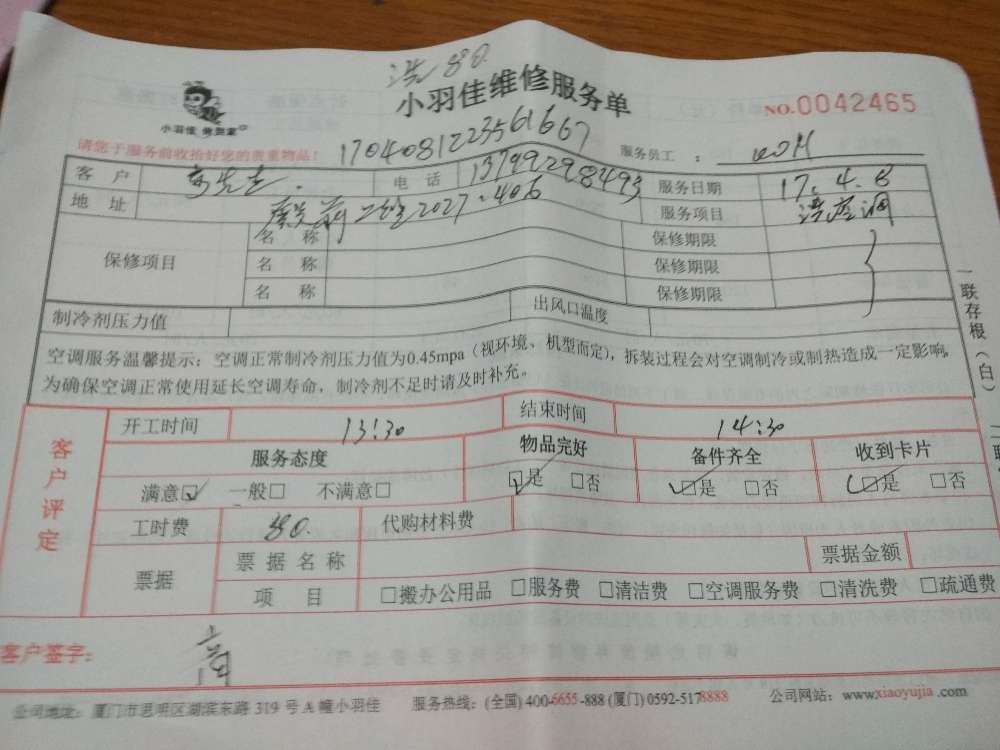 洗80.
小羽佳维修服务单
NO.0042465
小羽佳 做到家
请您于服务前收拾好您的贵重物品！ 17040812235616667 服务员工：
客户 先生. 电话 13799298493 服务日期 17.4.8
地址 前二路2027-406 服务项目 洗空调
保修项目 名称 保修期限
名称 保修期限
名称 保修期限
制冷剂压力值 出风口温度
空调服务温馨提示：空调正常制冷剂压力值为0.45mpa（视环境、机型而定），拆装过程会对空调制冷或制热造成一定影响，
为确保空调正常使用延长空调寿命，制冷剂不足时请及时补充。
一联存根（白）
客户评定
开工时间 13:30 结束时间 14:30
服务态度 物品完好 备件齐全 收到卡片
满意☑ 一般□ 不满意□ ☑是 □否 ☑是 □否 ☑是 □否
工时费 80. 代购材料费
票据 票据名称 票据金额
项目 □搬办公用品 □服务费 □清洁费 □空调服务费 □清洗费 □疏通费
客户签字：
公司地址：厦门市思明区湖滨东路 319 号 A 幢小羽佳 服务热线：(全国) 400-6655-888 (厦门) 0592-5178888 公司网站：www.xiaoyujia.com